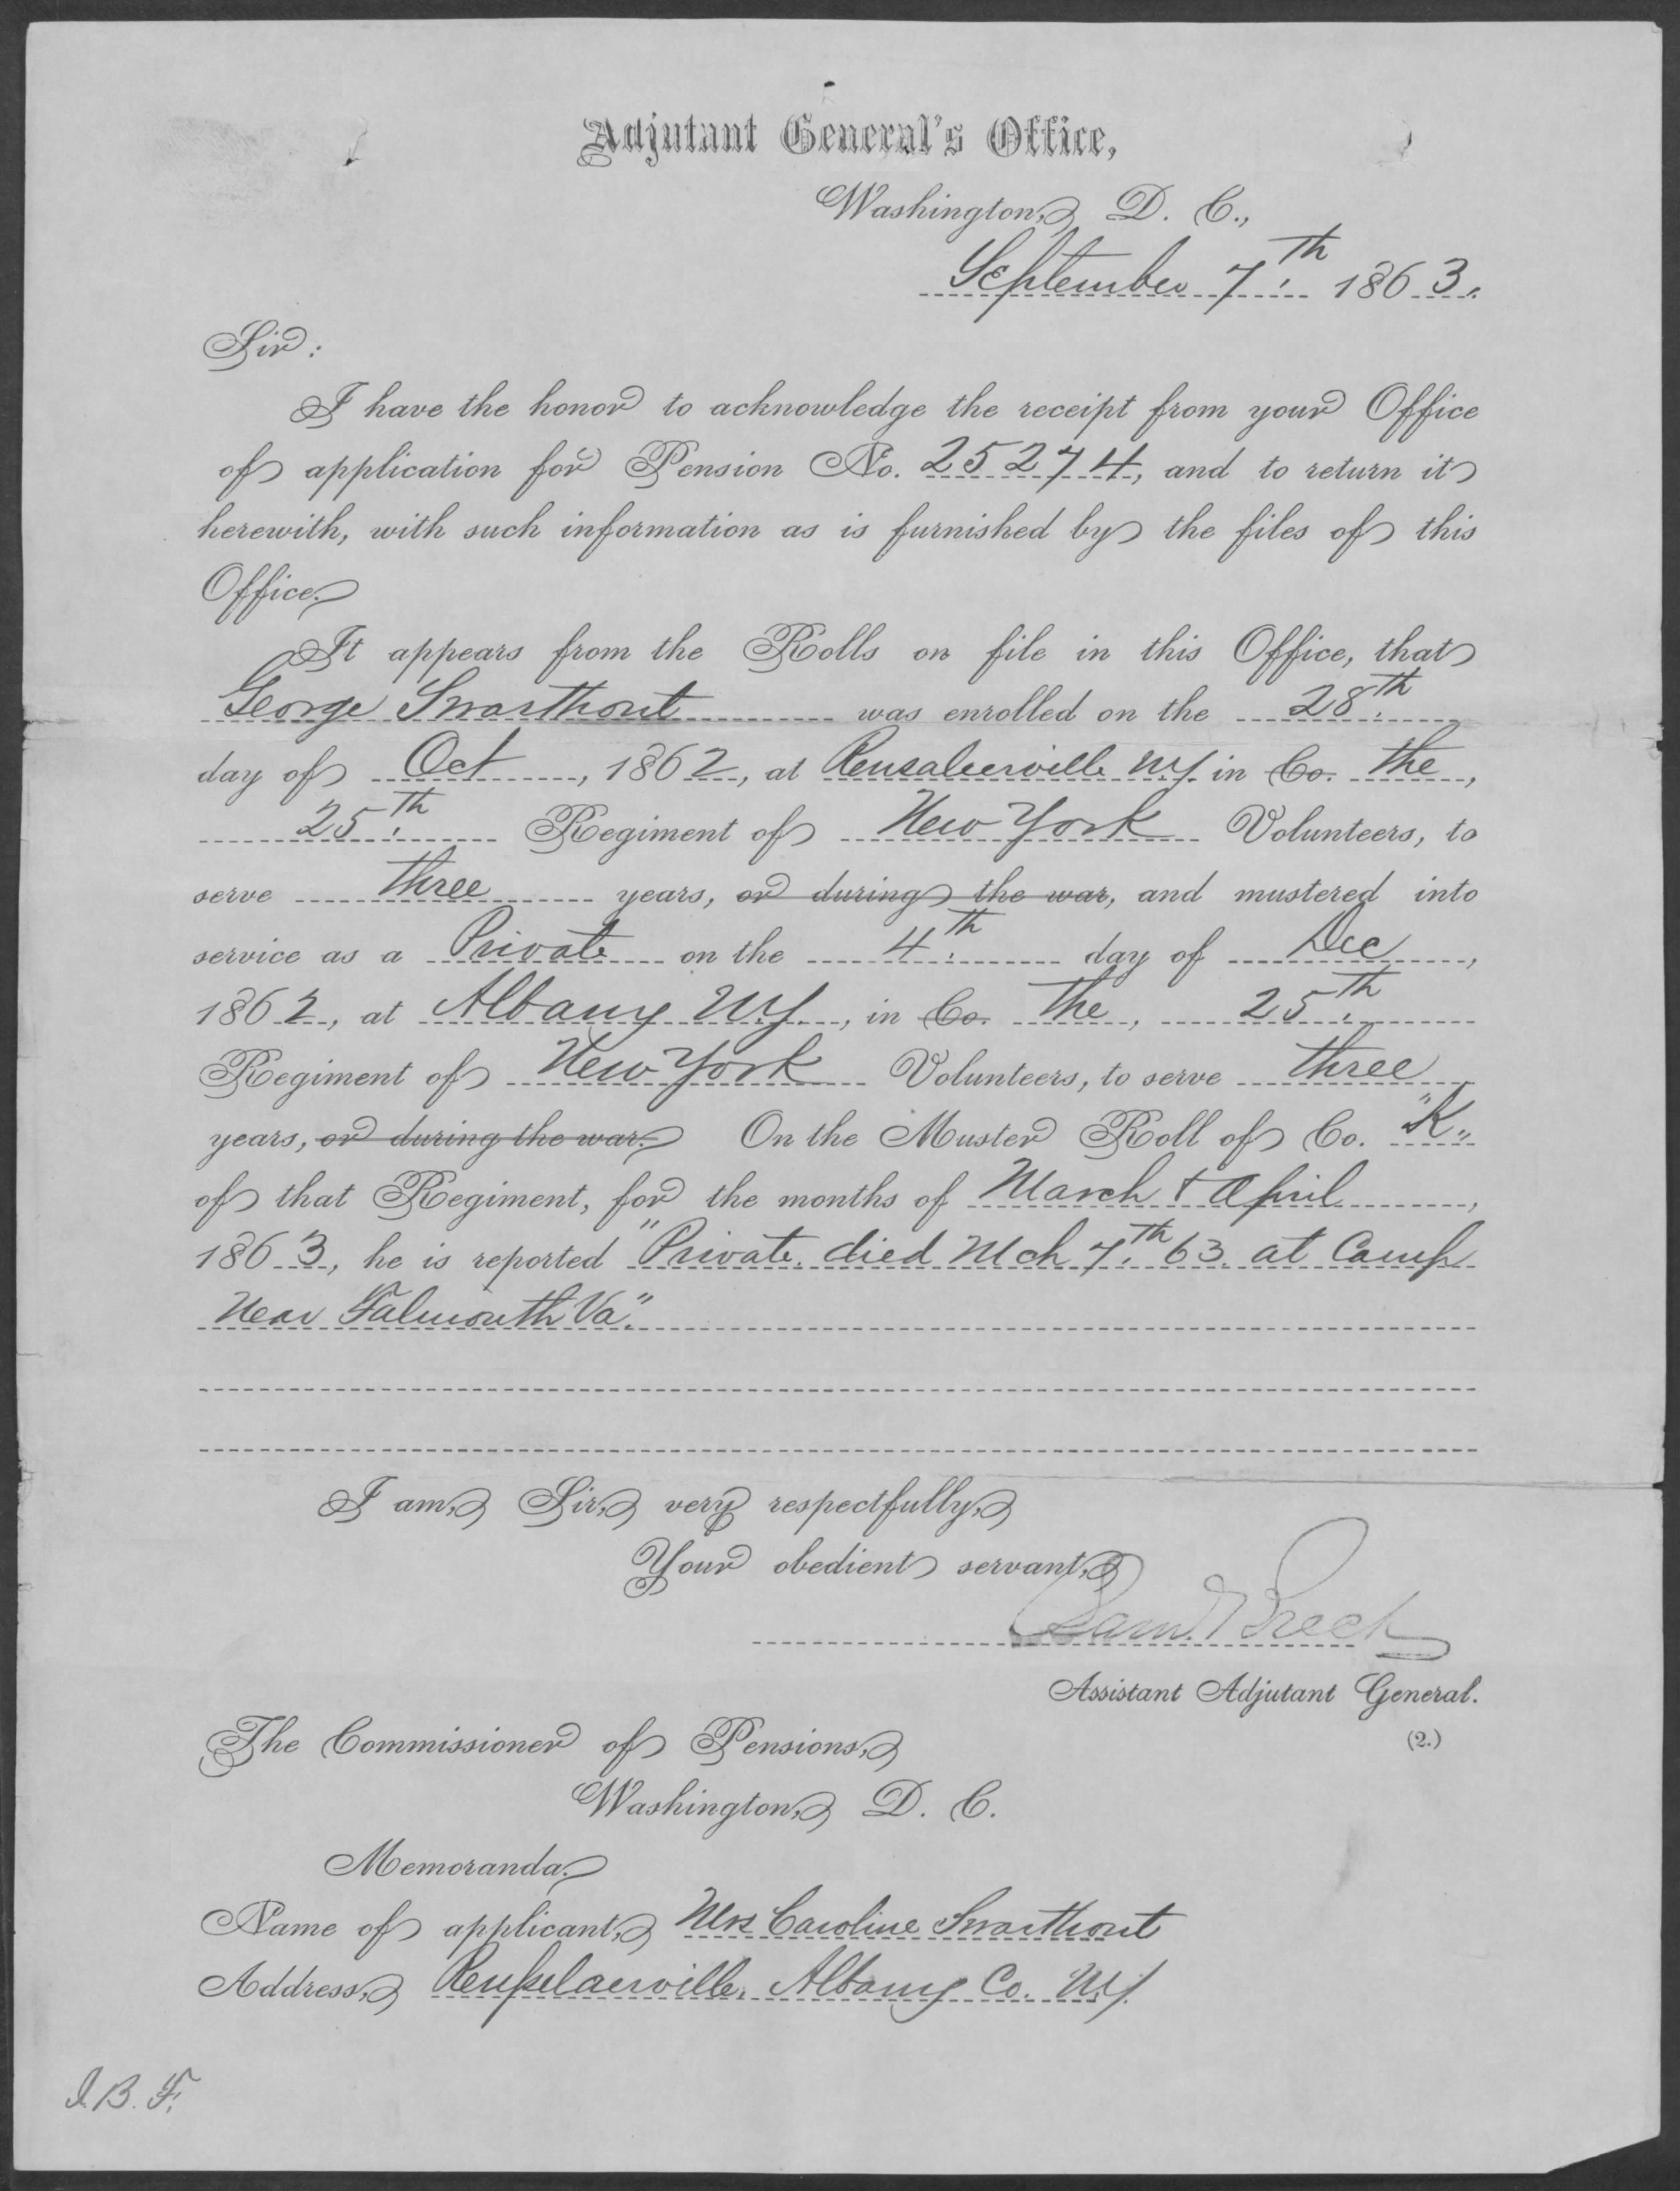 Adjutant General's Office,
Washington, D. C.,
September 7th 1863.
Sir:
I have the honor to acknowledge the receipt from your Office
of application for Pension No. 25274, and to return it
herewith, with such information as is furnished by the files of this
Office.
It appears from the Rolls on file in this Office, that
George Swarthout was enrolled on the 28th
day of Oct, 1862, at Rensalerville NY. in Co. the,
25th Regiment of New York Volunteers, to
serve three years, or during the war, and mustered into
service as a Private on the 4th day of Dec,
1862, at Albany NY., in Co. the, 25th
Regiment of New York Volunteers, to serve three
years, or during the war. On the Muster Roll of Co. "K"
of that Regiment, for the months of March & April,
1863, he is reported "Private. died Mch 7th 63. at Camp
Near Falmouth Va".
I am, Sir, very respectfully,
Your obedient servant,
Sam. Breck
Assistant Adjutant General.
(2.)
The Commissioner of Pensions,
Washington, D. C.
Memoranda.
Name of applicant, Mrs Caroline Swarthout
Address, Rensselaerville, Albany Co. N.Y.
I. B. F.